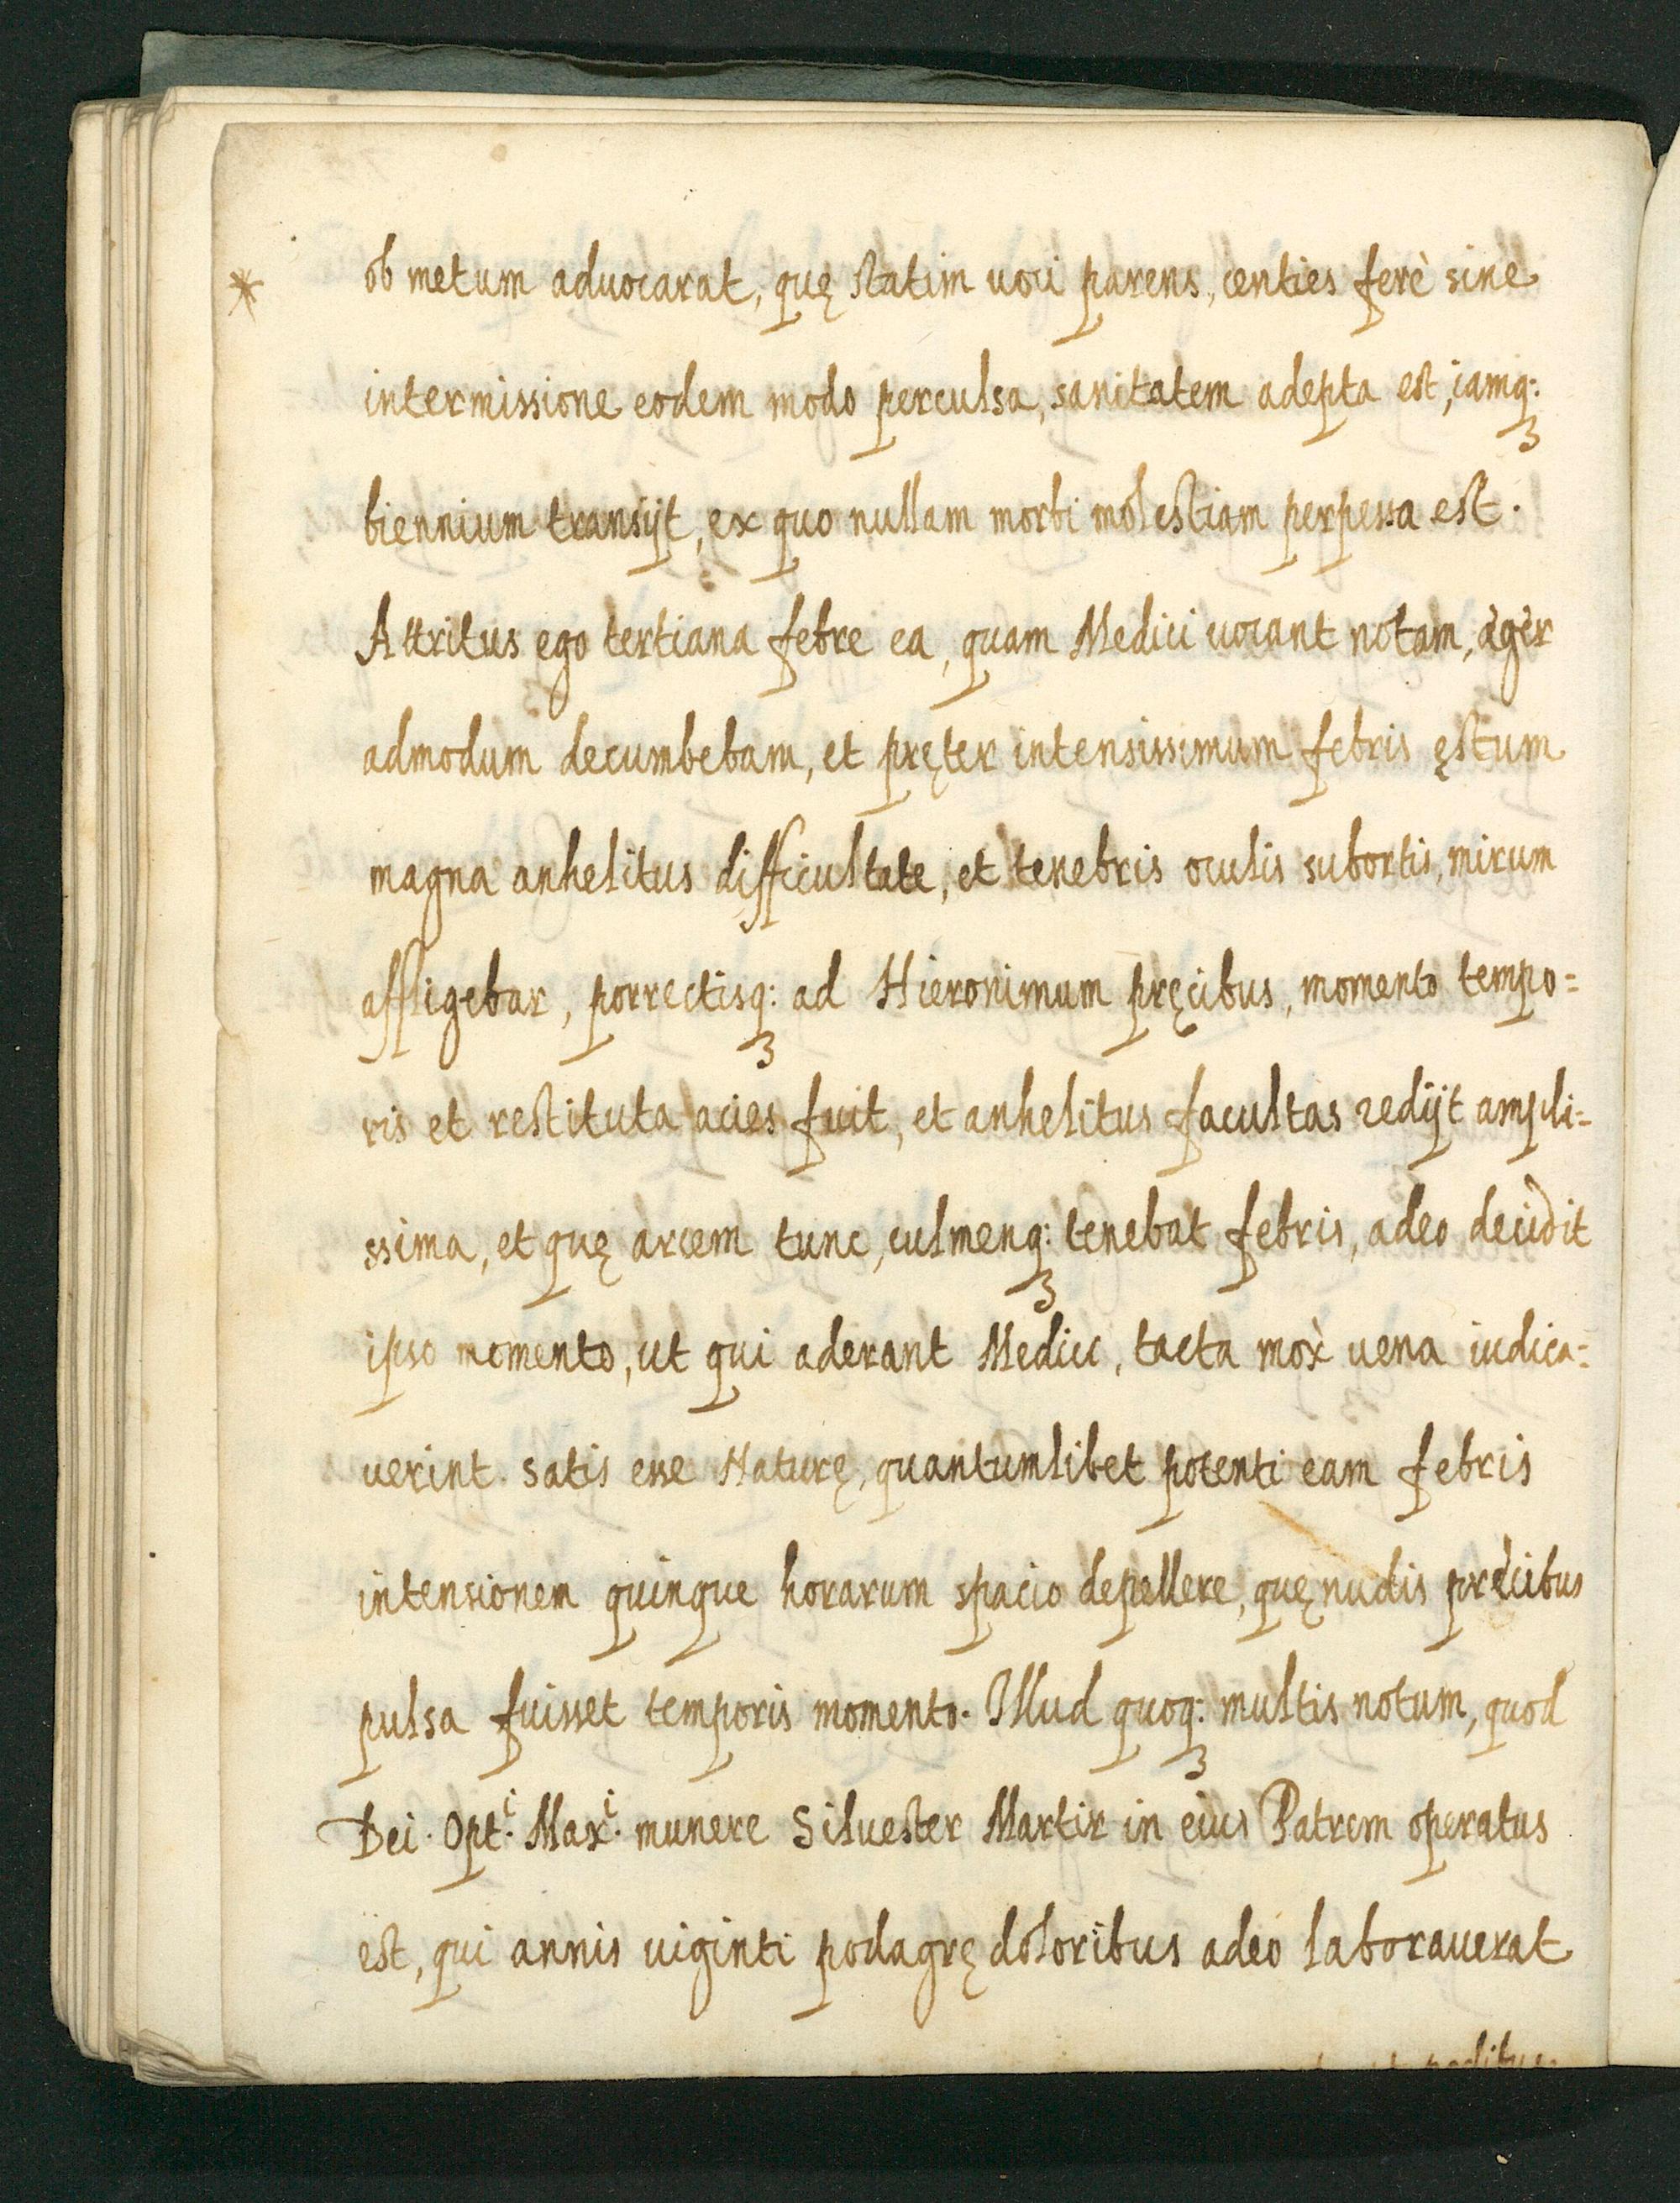 * ob metum aduocarat, quę statim uoci parens, centies ferè sine
intermissione eodem modo perculsa, sanitatem adepta est, iamq:
biennium transijt, ex quo nullam morbi molestiam perpessa est.
Attritus ego tertiana febre ea, quam Medici uocant notam, ęger
admodum decumbebam, et pręter intensissimum febris ęstum
magna anhelitus difficultate, et tenebris oculis subortis, mirum
affligebar, porrectisq: ad Hieronimum pręcibus, momento tempo=
ris et restituta acies fuit, et anhelitus facultas redijt ampli=
ssima, et quę arcem tunc, culmenq: tenebat febris, adeo decidit
ipso momento, ut qui aderant Medici, tacta mox uena iudica=
uerint satis esse Naturę, quantumlibet potenti eam febris
intensionem quinque horarum spacio depellere, quę nudis precibus
pulsa fuisset temporis momento. Illud quoq: multis notum, quod
Dei. Opt.i Max.i munere Siluester Martir in eius Patrem operatus
est, qui annis uiginti podagrę doloribus adeo laborauerat